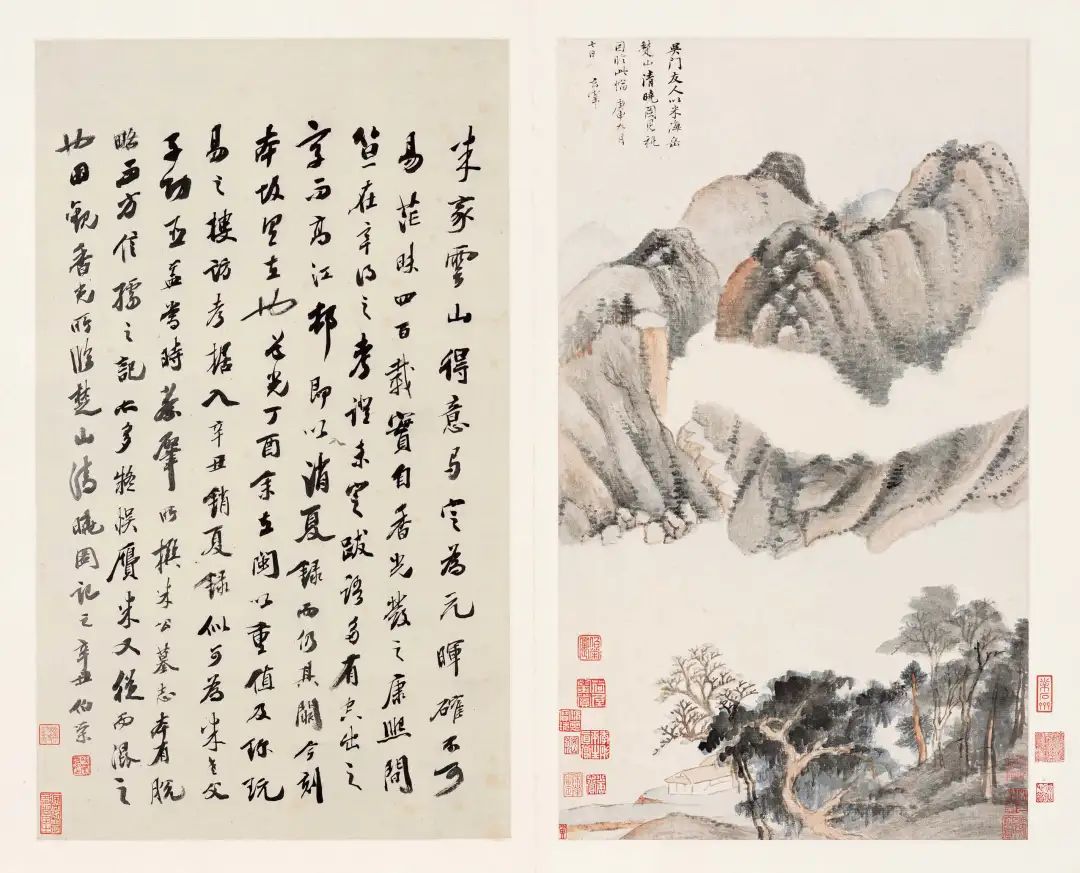 吳门友人以米海岳
楚山清曉圖見
因臨此幅 庚申九月
七日 玄宰
米家雲山得意 定為元暉確不可
易茫昧四百載實自香光發之康熙間
笪在辛得之考證未定跋語多有空出之
字而高江邨即以消夏錄而仍其闕今刻
本 也道光丁酉余在閩以重值及珎玩
易之 訪考據入辛丑銷夏錄似可為米老父
子功臣蓋當時蔡肇所撰米公墓志本有脫
略而方信孺之記亦多疑悞贋米又從而溷之
也因觀香光所臨楚山清曉圖記之辛丑 伯榮